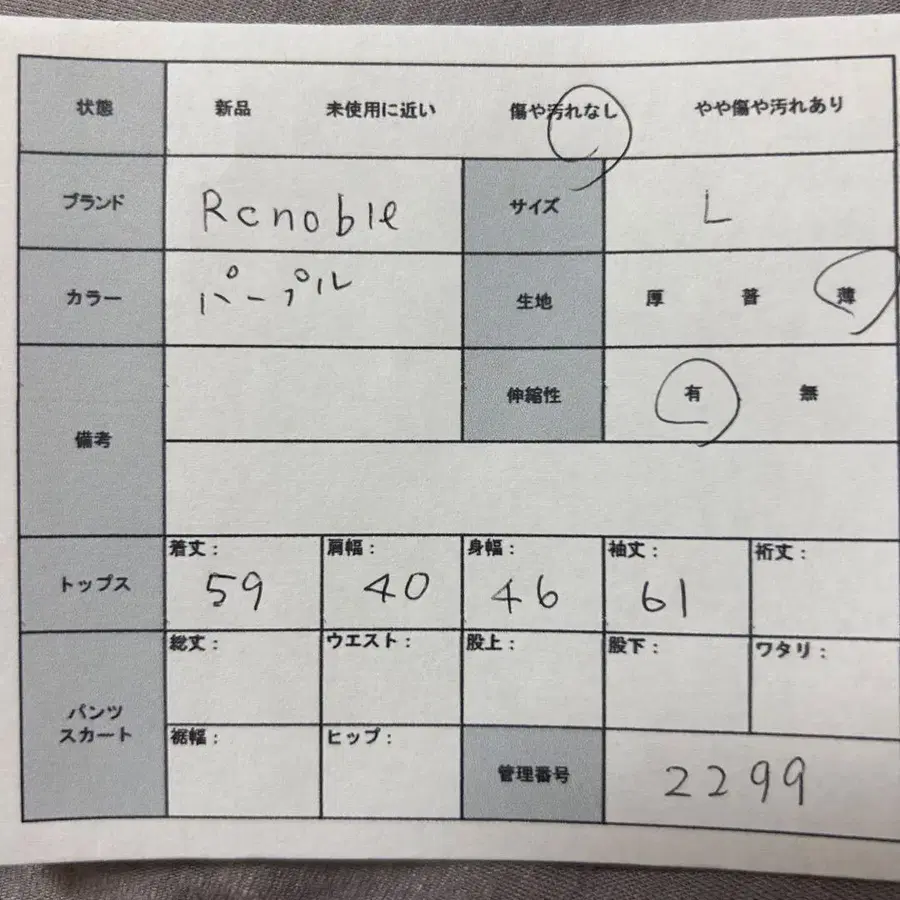 状態 新品 未使用に近い 傷や汚れなし やや傷や汚れあり
ブランド Rcnoble サイズ L
カラー パープル 生地 厚 普 薄
伸縮性 有 無
備考
トップス 着丈: 59 肩幅: 40 身幅: 46 袖丈: 61 裄丈:
総丈: ウエスト: 股上: 股下: ワタリ:
パンツ
スカート
裾幅: ヒップ: 管理番号 2299